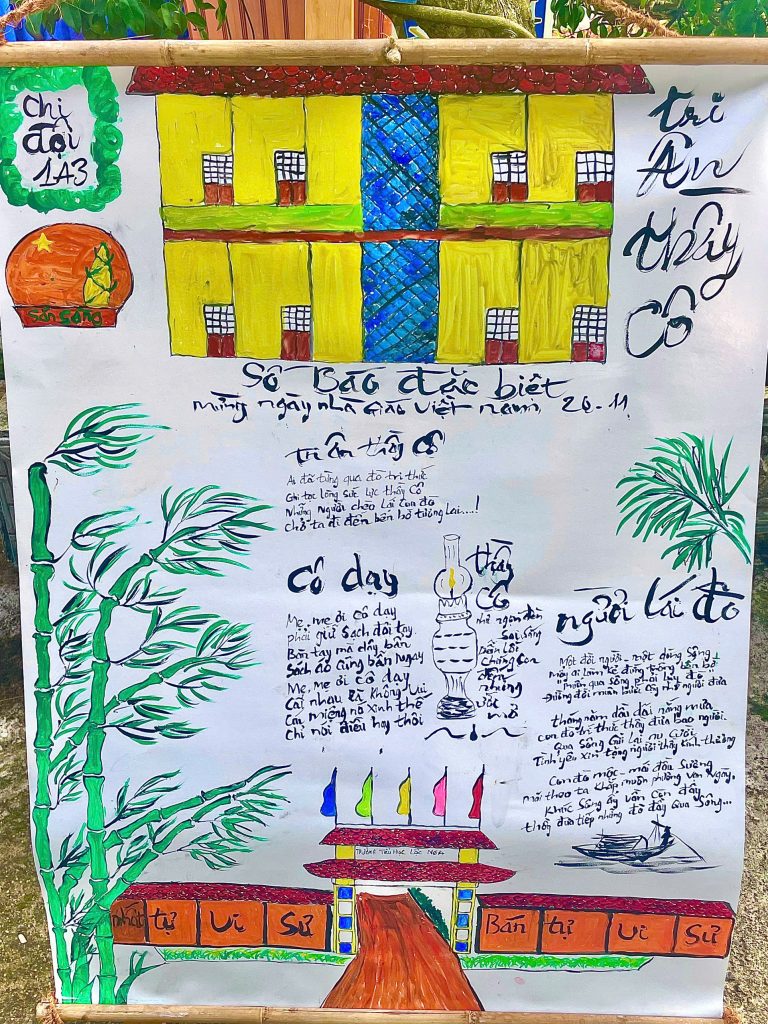 Chi
đội
1A3
tri
Ân
thầy
Cô
Sẵn sàng
Số Báo đặc biệt
mừng ngày nhà giáo việt nam 20-11
tri ân thầy Cô
Ai đã từng qua đò tri thức
Ghi tạc lòng sức lực thầy Cô
Những người chèo lái con đò
Chở ta đi đến bên bờ tương lai....!
Cô dạy
Mẹ, mẹ ơi cô dạy
phải giữ sạch đôi tay
Bàn tay mà dây bẩn
Sách áo cũng bẩn ngay
Mẹ, mẹ ơi cô dạy
Cãi nhau là không vui
Cái miệng nó xinh thế
Chỉ nói điều hay thôi
thầy
Cô
như ngọn đèn
soi sáng
Dẫn lối
Chúng con
đến
những
ước
mơ
người lái đò
Một đời người - một dòng sông
mấy ai làm kẻ đứng trông bến bờ
muốn qua sông phải lụy đò
Đường đời muôn bước cậy nhờ người đưa
tháng năm dầu dãi nắng mưa
con đò trí thức thầy đưa bao người
Qua sông gửi lại nụ cười
Tình yêu xin tặng người thầy kính thương
Con đò mộc - mái đầu sương
mãi theo ta khắp muôn phương vạn ngày,
khúc sông ấy vẫn còn đây
thầy đưa tiếp những đò đầy qua sông...
Trường Tiểu Học
nhất tự vi sư
Bán tự vi sư